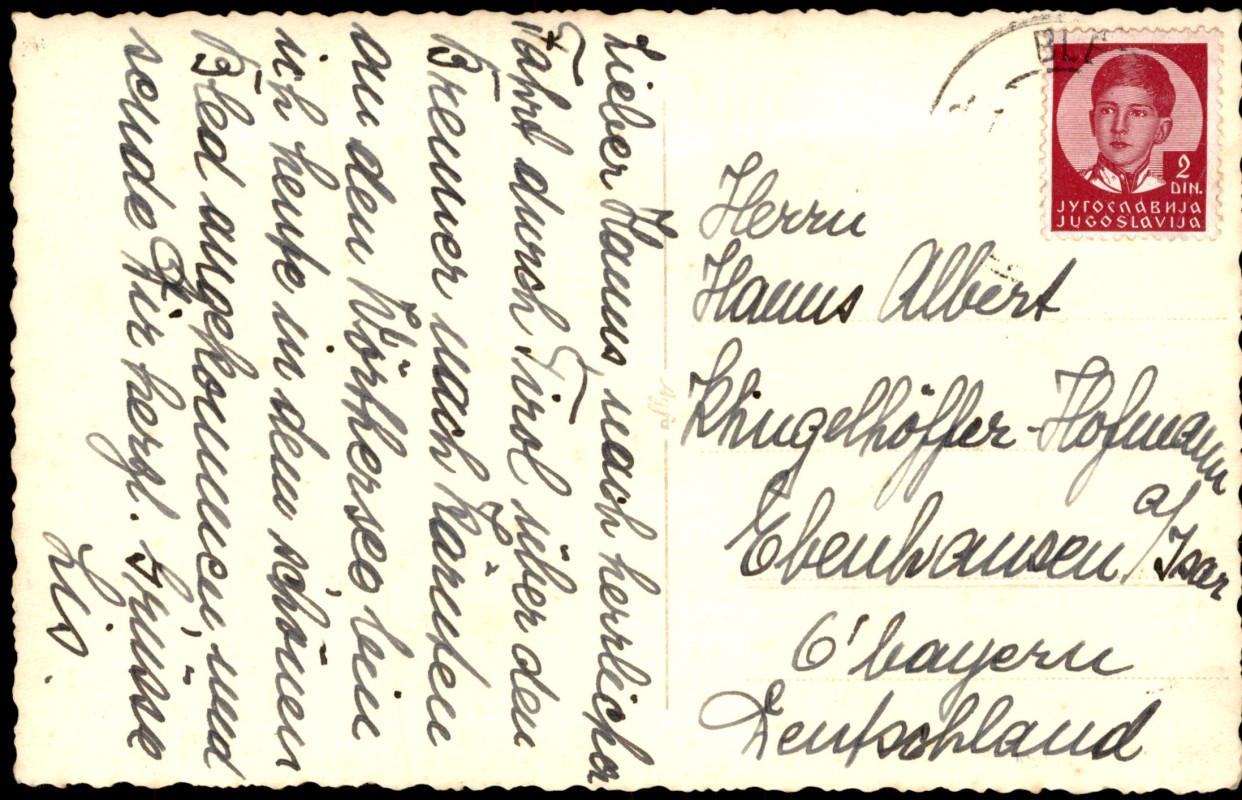 Lieber Hanns, nach herrlicher
Fahrt durch Tirol über den
Brenner nach Kärnten
an den Wörthersee bin
ich heute in dem schönen
Bled angekommen, und
sende Dir herzl. Grüsse
Lis.
BLE
2
DIN.
ЈУГОСЛАВИЈА
JUGOSLAVIJA
Herrn
Hanns Albert
Klingelhöffer-Hofmann
Ebenhausen a/Isar
O'bayern
Deutschland